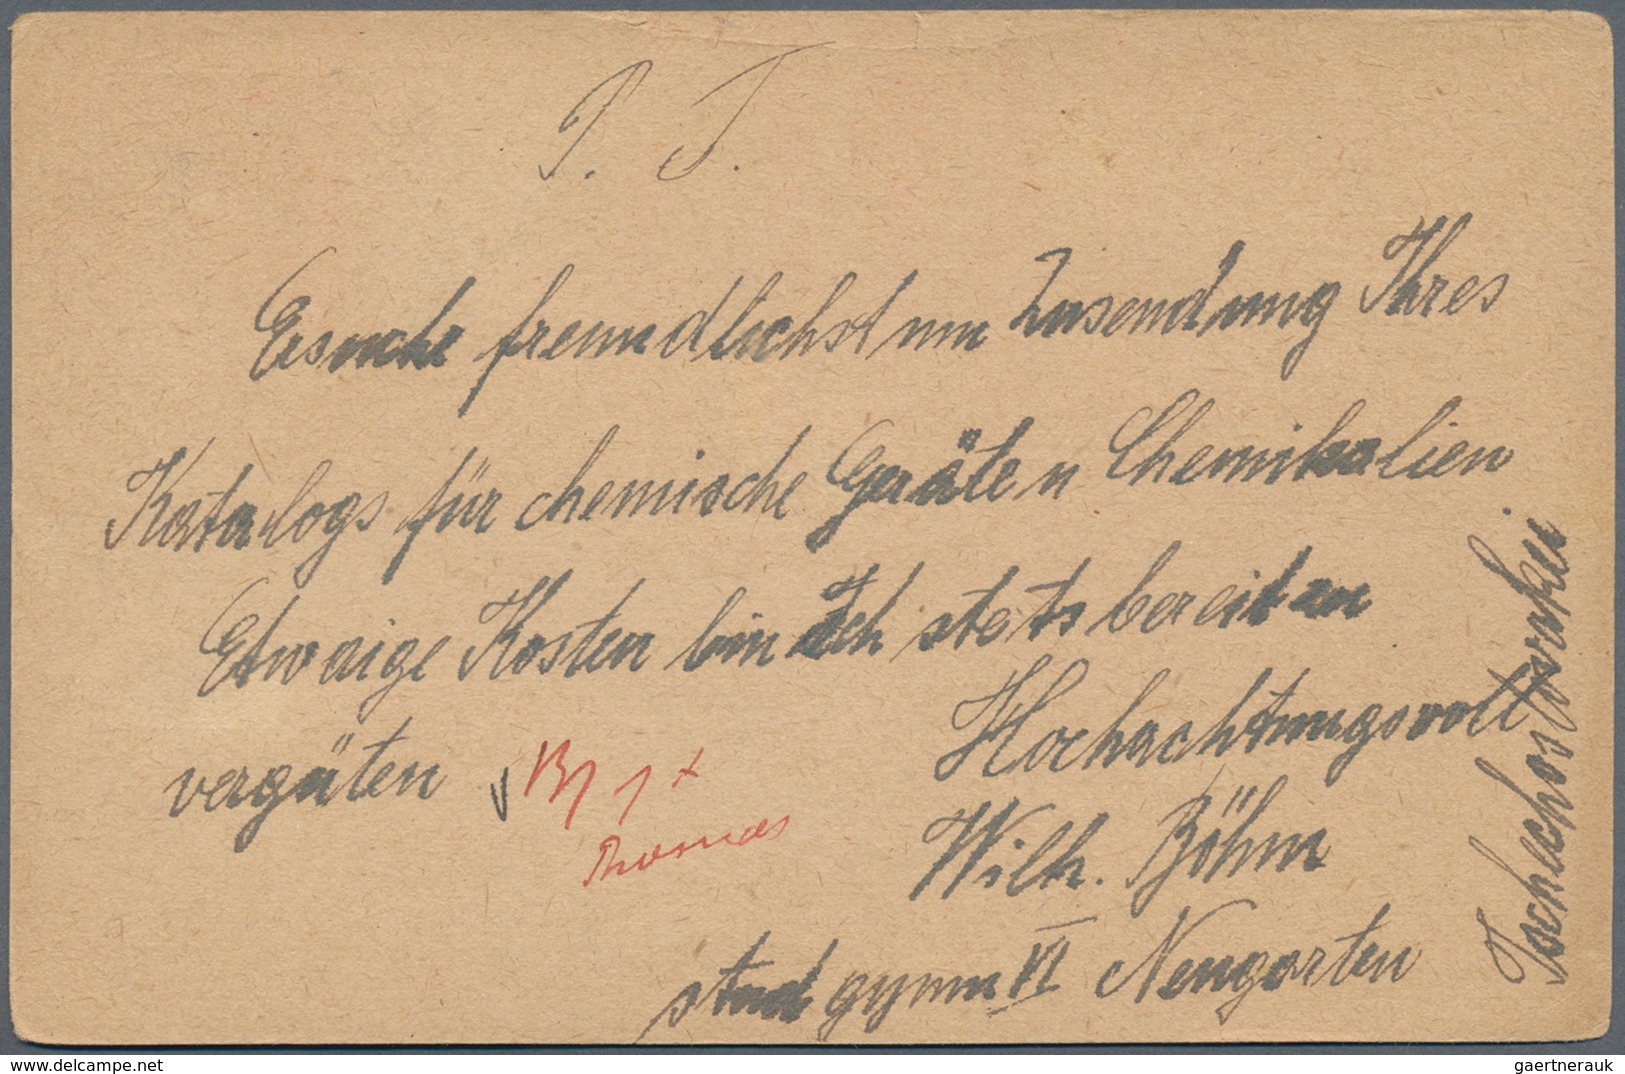 P. T.
Ersuche freundlichst um Zusendung Ihres
Katalogs für chemische Geräte u Chemikalien.
Etwaige Kosten bin ich stets bereit zu
vergüten
Hochachtungsvoll
Wilh. Böhm
stud gymn VI Neugarten
Tschechoslovakei
© www.delcampe.net
gaertnerauk